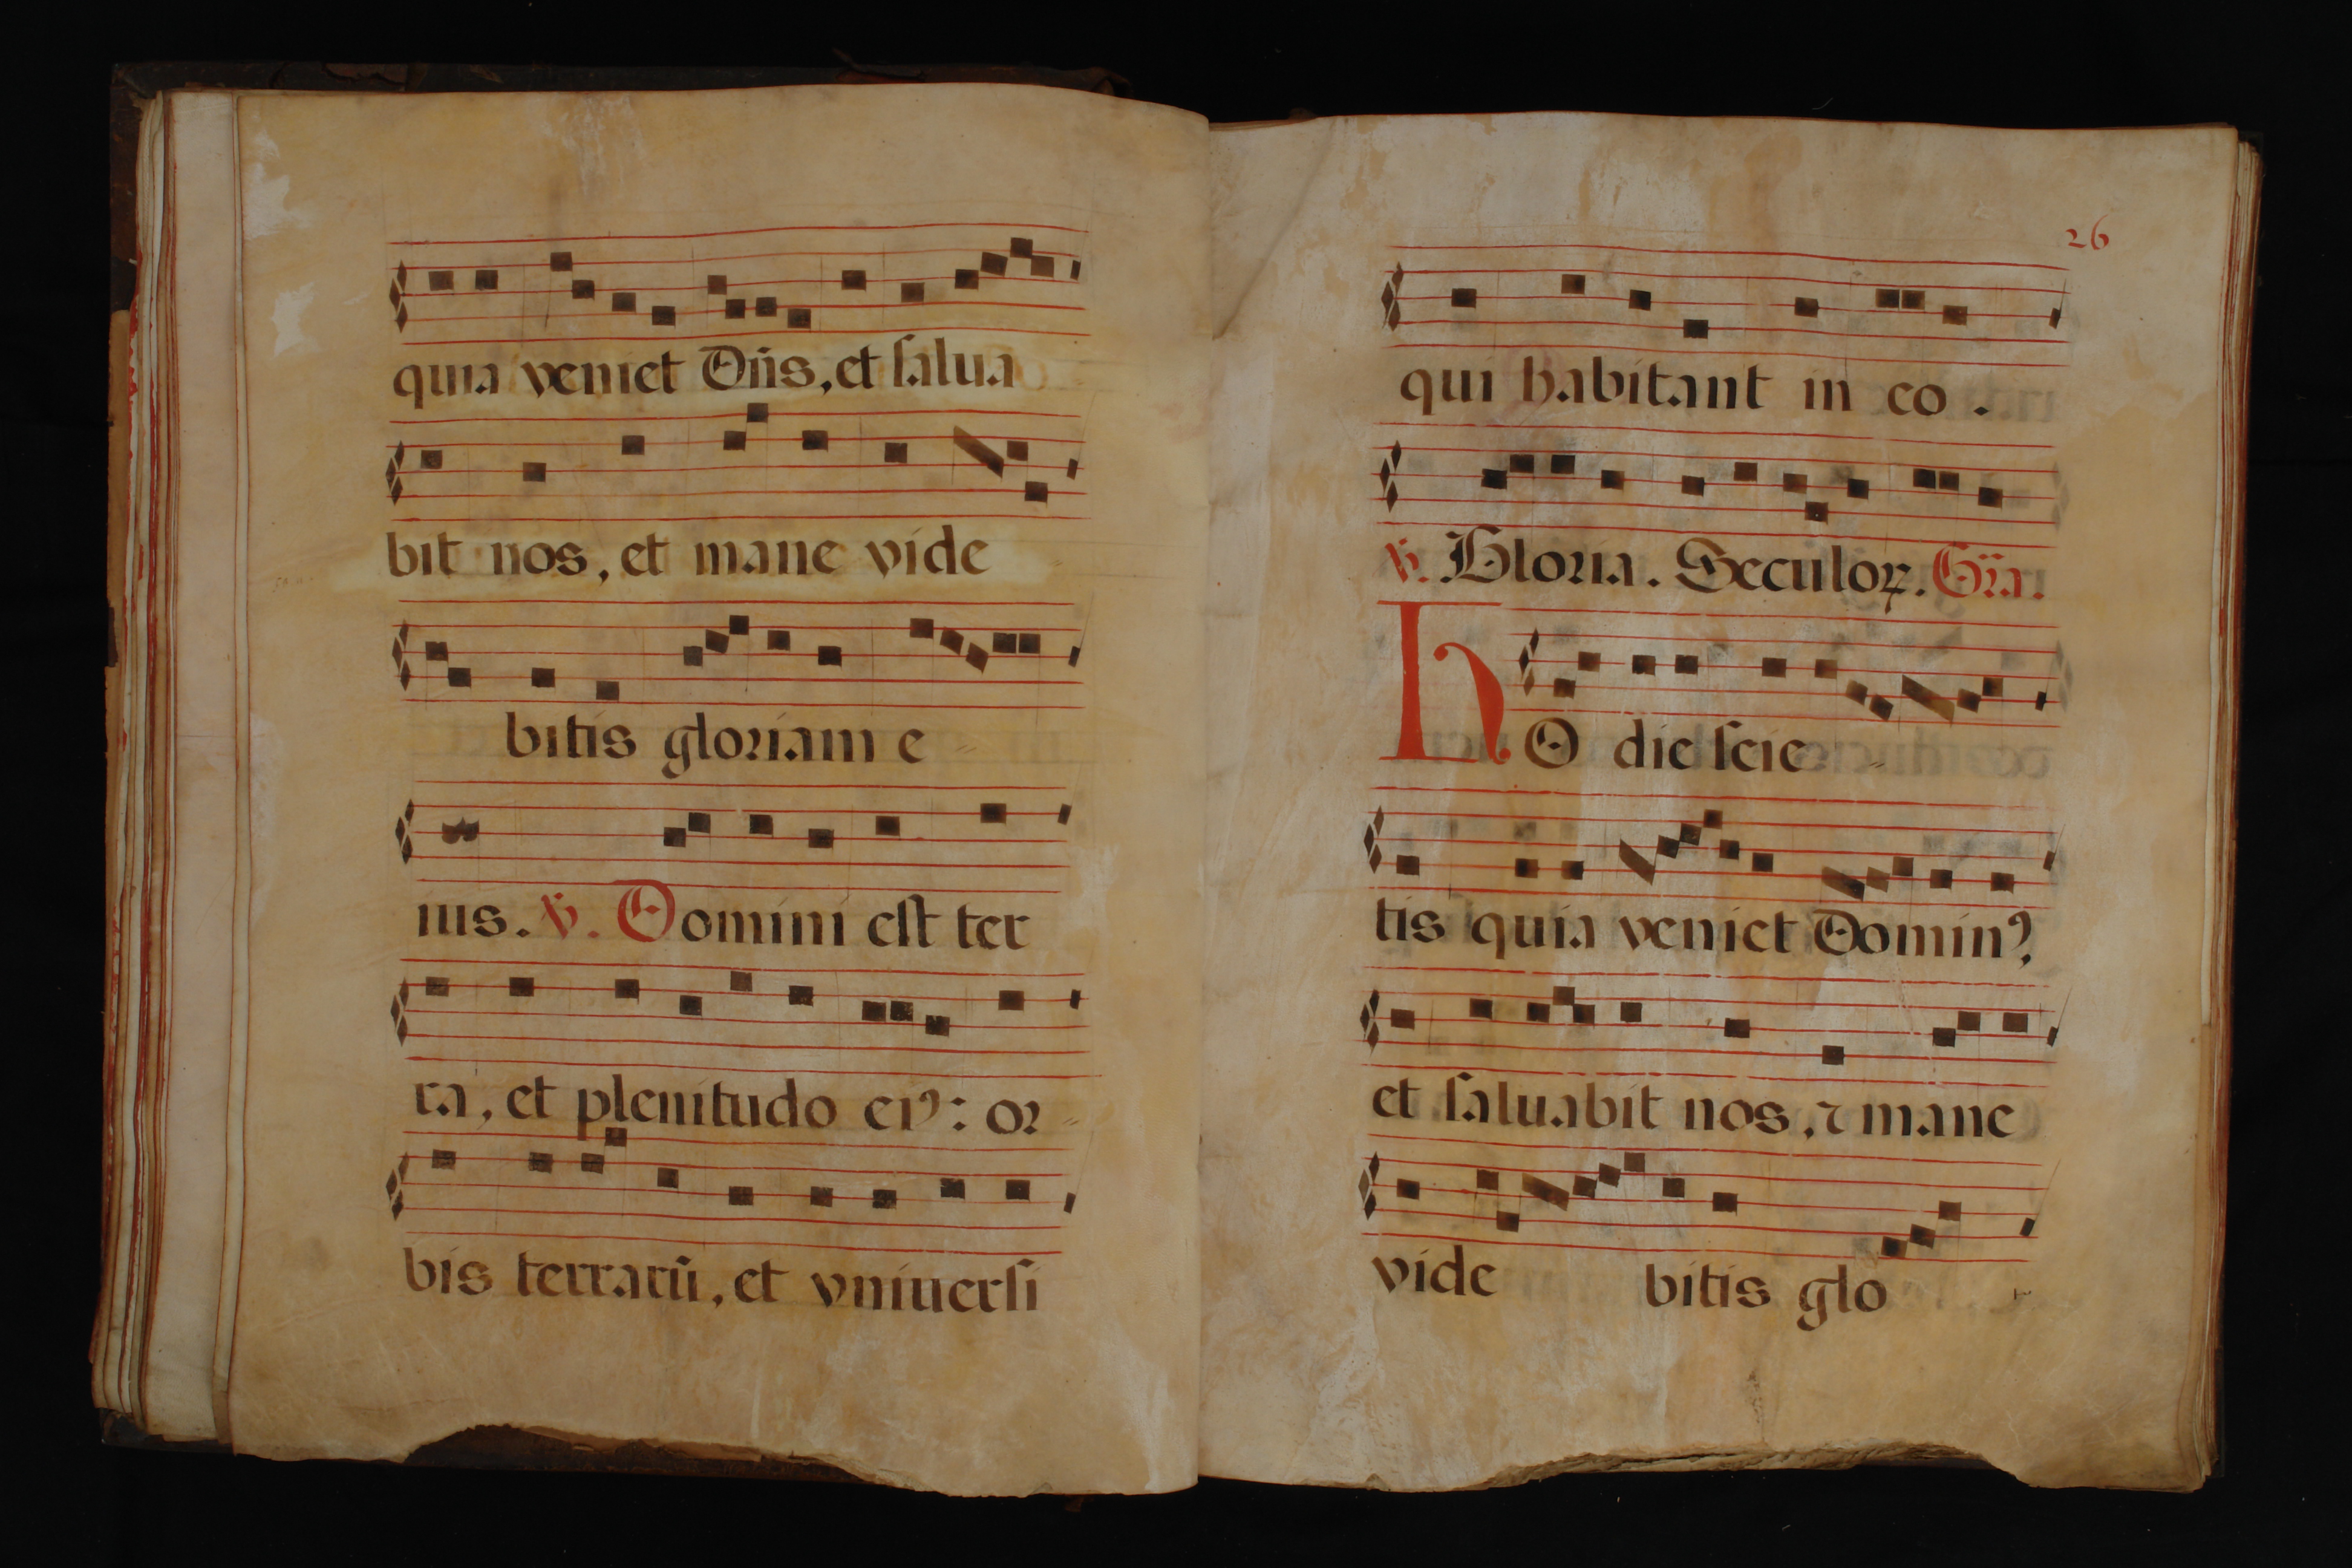 quia veniet Dñs, et ſalua
bit nos, et mane vide
bitis gloriam e
ius. ℣. Domini eſt ter
ra, et plenitudo eiꝰ: or
bis terrarũ, et vniuerſi
26
qui habitant in eo.
℣. Gloria. Seculoꝝ. Gr̃a.
HO die ſcie
tis quia veniet Dominꝰ,
et ſaluabit nos, ⁊ mane
vide bitis glo